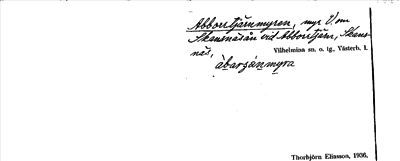 Abborrtjärnmyren, myr V. om
Skansnäsån vid Abborrtjärn, Skans-
näs, Vilhelmina sn. o. tg., Västerb. l.
àbarʒánmyra
Thorbjörn Eliasson, 1936.